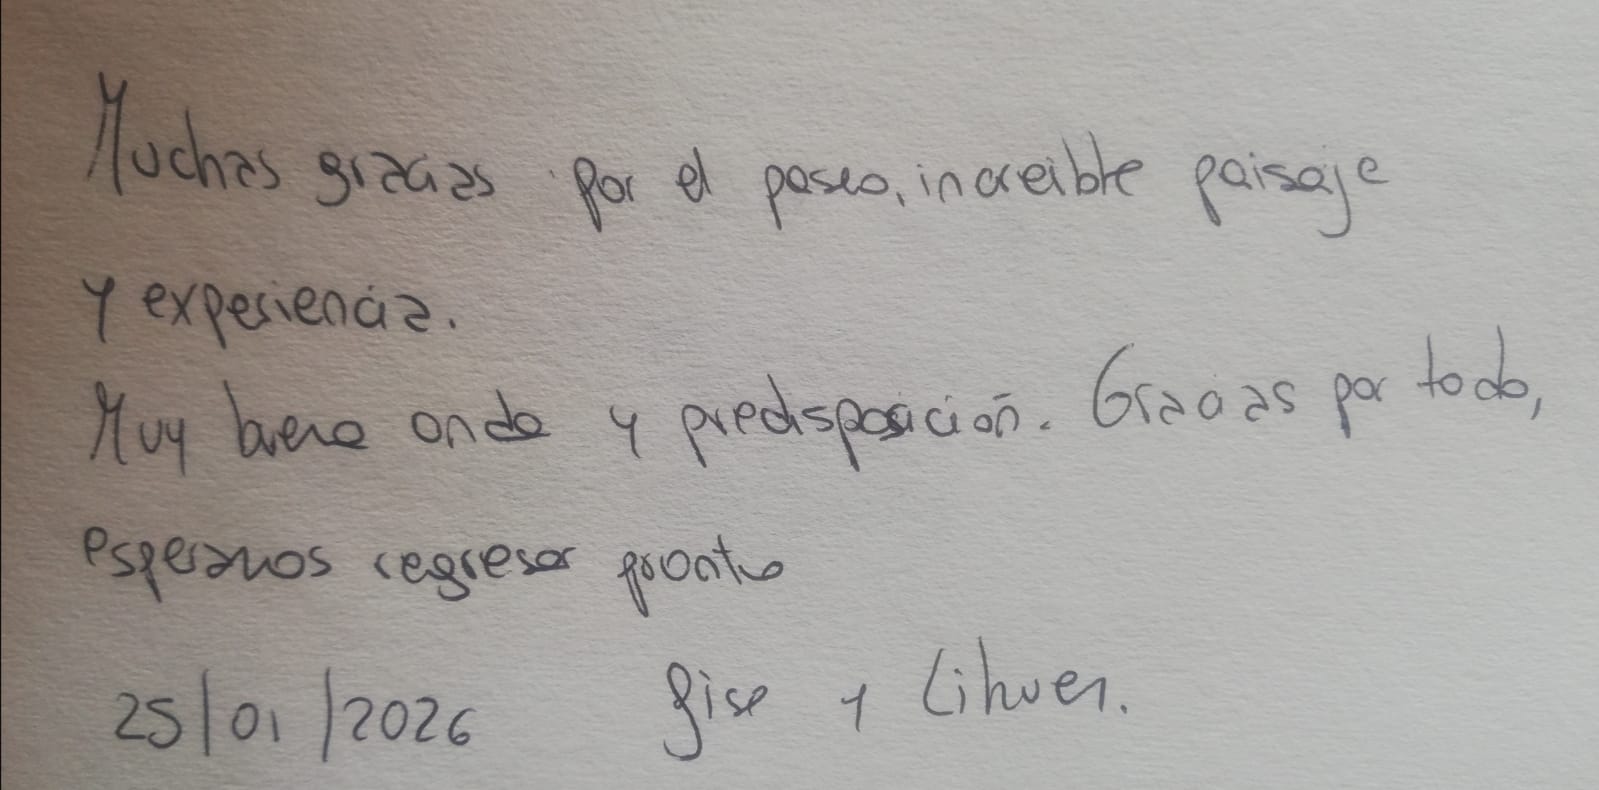 Muchas gracias por el paseo, increible paisaje
y experiencia.
Muy buena onda y predisposición. Gracias por todo,
esperamos regresar pronto
25/01/2026 Gise y Lihuen.